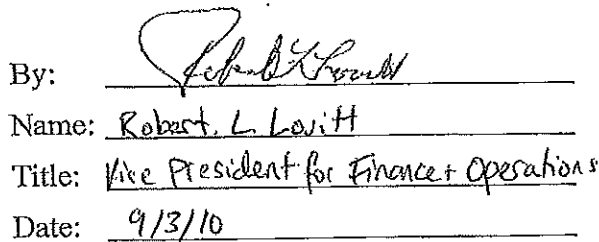 By: Robert L Lovitt
Name: Robert. L Lovitt
Title: Vice President for Finance + Operations
Date: 9/3/10